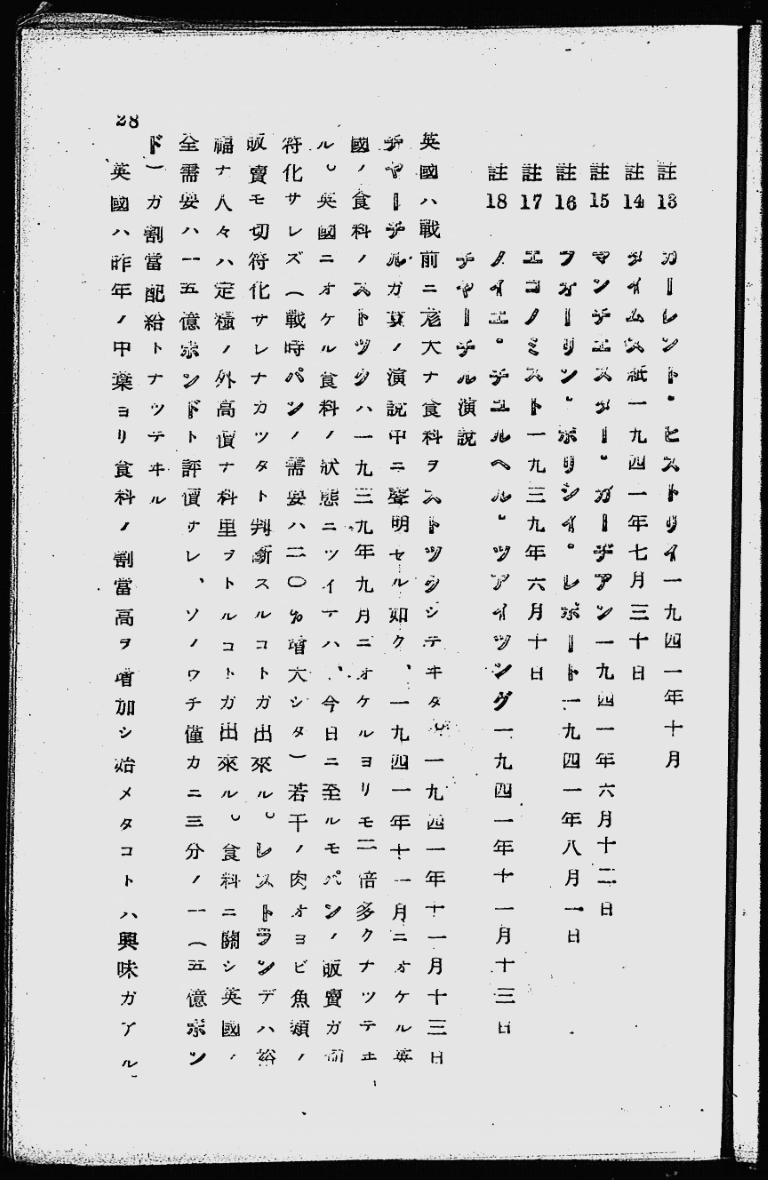 註13 カーレント・ヒストリイ一九四一年十月
註14 タイムス紙一九四一年七月三十日
註15 マンチエスター・ガーヂアン一九四一年六月十二日
註16 フオーリン・ポリシイ・レポート一九四一年八月一日
註17 エコノミスト一九三九年六月十日
註18 ノイエ・チユルヘル・ツアイツング一九四一年十一月十三日
チヤーチル演説
英國ハ戰前ニ尨大ナ食料ヲストツクシテヰタ。一九四一年十一月十三日
チヤーチルガ其ノ演説中ニ聲明セル如ク、一九四一年十一月ニオケル英
國ノ食料ノストツクハ一九三九年九月ニオケルヨリモ二倍多クナツテヰ
ル。英國ニオケル食料ノ狀態ニツイテハ、今日ニ至ルモパンノ販賣ガ切
符化サレズ（戰時パンノ需要ハ二〇％增大シタ）若干ノ肉オヨビ魚類ノ
販賣モ切符化サレナカツタト判斷スルコトガ出來ル。レストランデハ裕
福ナ人々ハ定糧ノ外高價ナ料理ヲトルコトガ出來ル。食料ニ關シ英國ノ
全需要ハ一五億ポンドト評價サレ、ソノウチ僅カニ三分ノ一（五億ポン
ド）ガ割當配給トナツテヰル
英國ハ昨年ノ中葉ヨリ食料ノ割當高ヲ增加シ始メタコトハ興味ガアル、
28